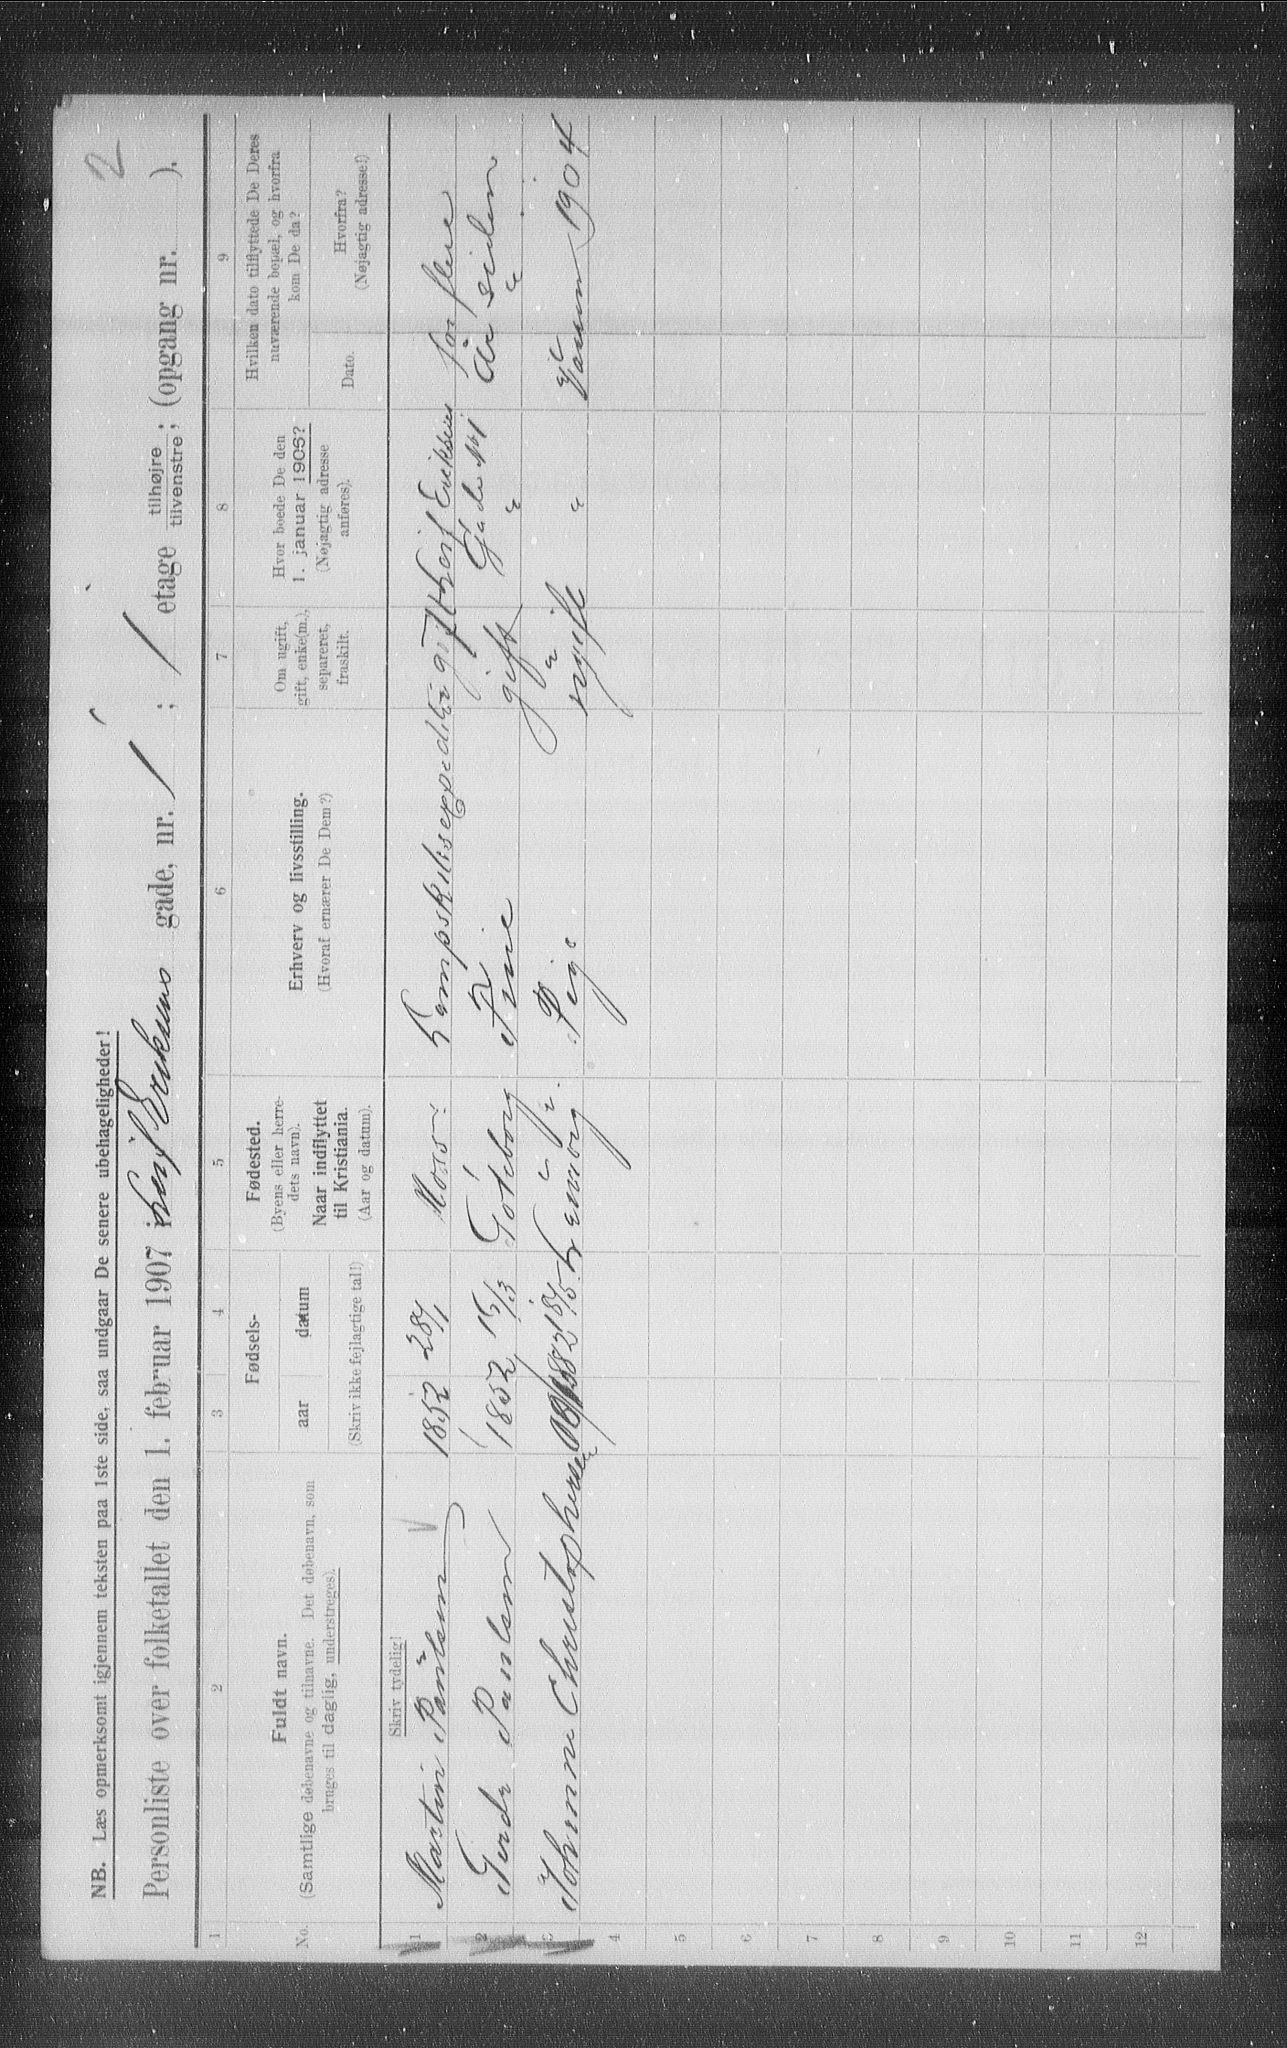 2
NB. Læs opmerksomt igjennem teksten paa 1ste side, saa undgaar De senere ubehageligheder!
Personliste over folketallet den 1. februar 1907 i Leif Eriksens gade, nr. 1; 1 etage tilhøjre tilvenstre; (opgang nr. ).
1 2 3 4 5 6 7 8 9
No.
Fuldt navn.
(Samtlige døbenavne og tilnavne. Det døbenavn, som
bruges til daglig, understreges).
Skriv tydelig!
Fødsels-
aar
datum
(Skriv ikke fejlagtige tal!)
Fødested.
(Byens eller herre-
dets navn).
Naar indflyttet
til Kristiania.
(Aar og datum).
Erhverv og livsstilling.
(Hvoraf ernærer De Dem?)
Om ugift,
gift, enke(m.),
separeret,
fraskilt.
Hvor boede De den
1. januar 1905?
(Nøjagtig adresse
anføres).
Hvilken dato tilflyttede De Deres
nuværende bopæl, og hvorfra
kom De da?
Dato.
Hvorfra?
(Nøjagtig adresse!)
1 Martin Paulsen 1852 28/1 Moss Dampskibsexpeditør gift Leif Eriksens for flere
2 Paulsen 1852 15/3 Göteborg Frue gift Gade N1 år siden
3 Johanne Christophersen 1882 18/5 Pige ugift " 1904
4
5
6
7
8
9
10
11
12